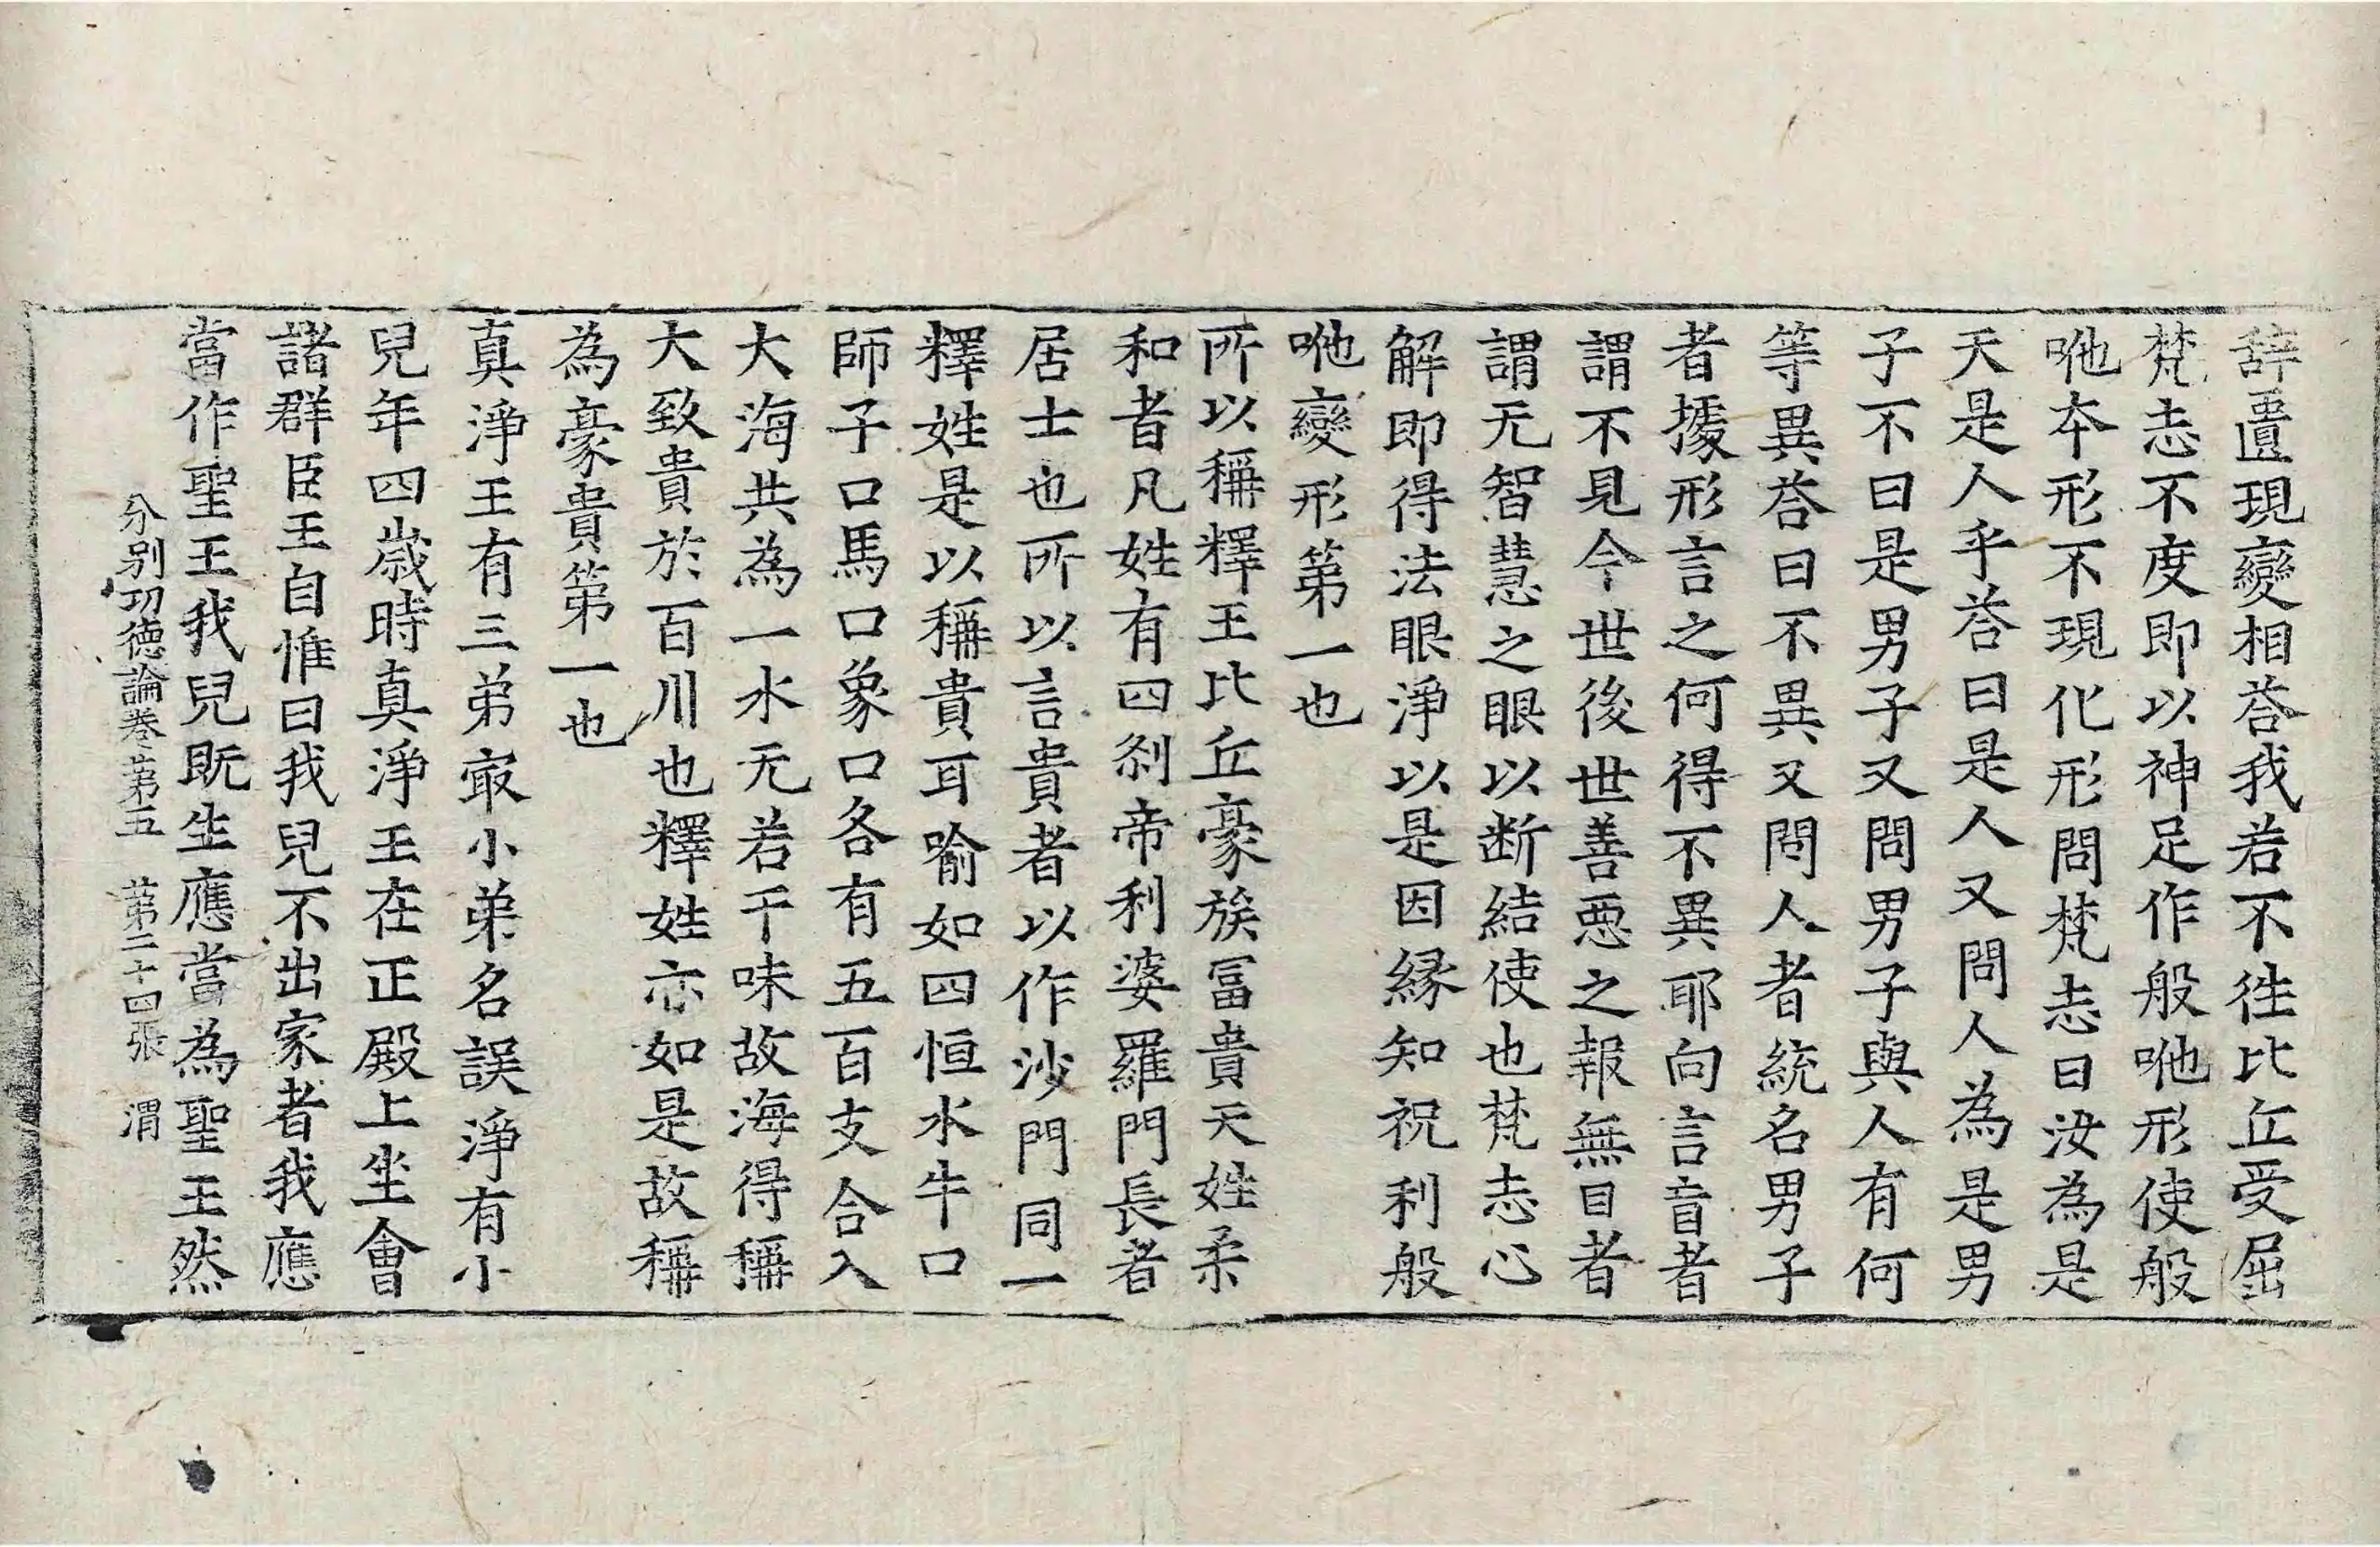 辞匱現變相荅我若不徃比丘受屈
梵志不度即以神足作般咃形使般
咃本形不現化形問梵志曰汝為是
天是人乎荅曰是人又問人為是男
子不曰是男子又問男子與人有何
等異荅曰不異又問人者統名男子
者據形言之何得不異耶向言盲者
謂不見今世後世善惡之報無目者
謂无智慧之眼以断結使也梵志心
解即得法眼淨以是因縁知祝利般
咃變形第一也
所以稱釋王比丘豪族冨貴天姓柔
和者凡姓有四刹帝利婆羅門長者
居士也所以言貴者以作沙門同一
釋姓是以稱貴耳喻如四恒水牛口
師子口馬口象口各有五百支合入
大海共為一水无若干味故海得稱
大致貴於百川也釋姓亦如是故稱
為豪貴第一也
真淨王有三弟㝡小弟名誤淨有小
兒年四歳時真淨王在正殿上坐會
諸群臣王自惟曰我兒不出家者我應
當作聖王我兒既生應當為聖王然
分別功德論卷第五 第二十四張 渭